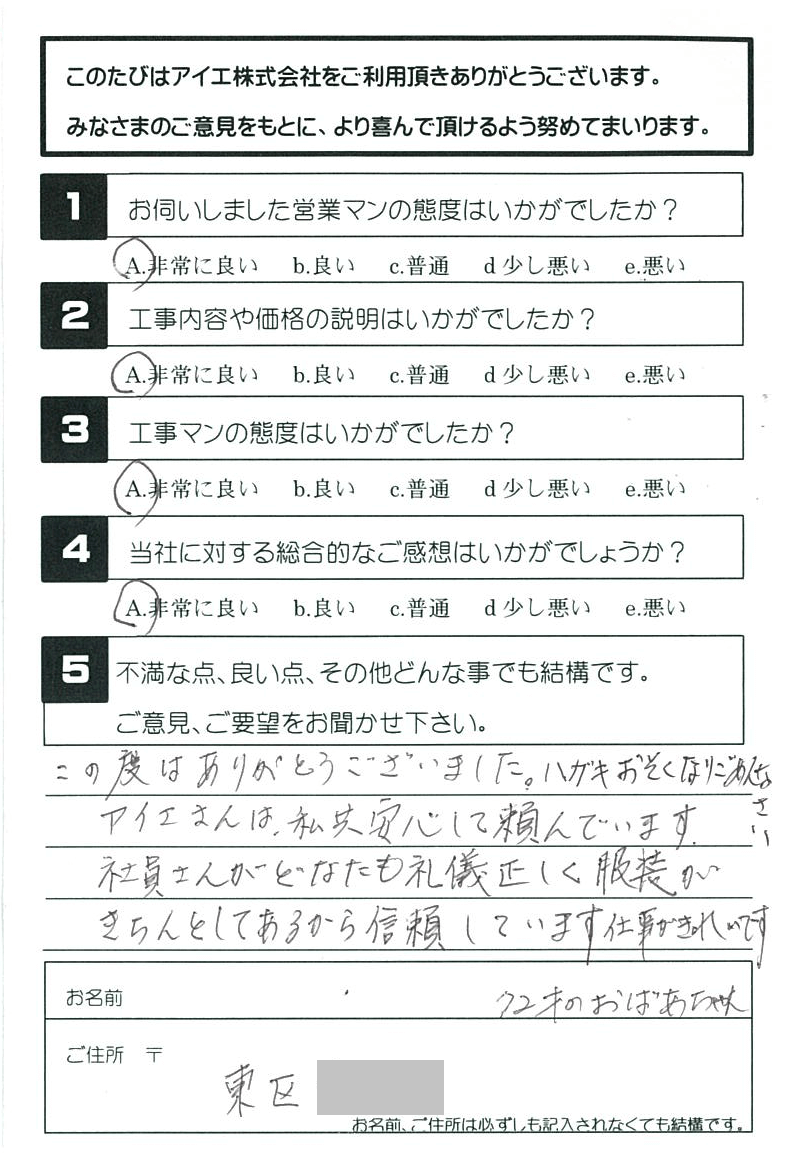 このたびはアイエ株式会社をご利用頂きありがとうございます。
みなさまのご意見をもとに、より喜んで頂けるよう努めてまいります。
1 お伺いしました営業マンの態度はいかがでしたか？
A.非常に良い b.良い c.普通 d 少し悪い e.悪い
2 工事内容や価格の説明はいかがでしたか？
A.非常に良い b.良い c.普通 d 少し悪い e.悪い
3 工事マンの態度はいかがでしたか？
A.非常に良い b.良い c.普通 d 少し悪い e.悪い
4 当社に対する総合的なご感想はいかがでしょうか？
A.非常に良い b.良い c.普通 d 少し悪い e.悪い
5 不満な点、良い点、その他どんな事でも結構です。
ご意見、ご要望をお聞かせ下さい。
この度はありがとうございました。ハガキおそくなりごめんなさい
アイエさんは、私共安心して頼んでいます。
社員さんがどなたも礼儀正しく服装が
きちんとしてあるから信頼しています仕事がきれいです
お名前 72才のおばあちゃん
ご住所 〒
東区
お名前、ご住所は必ずしも記入されなくても結構です。